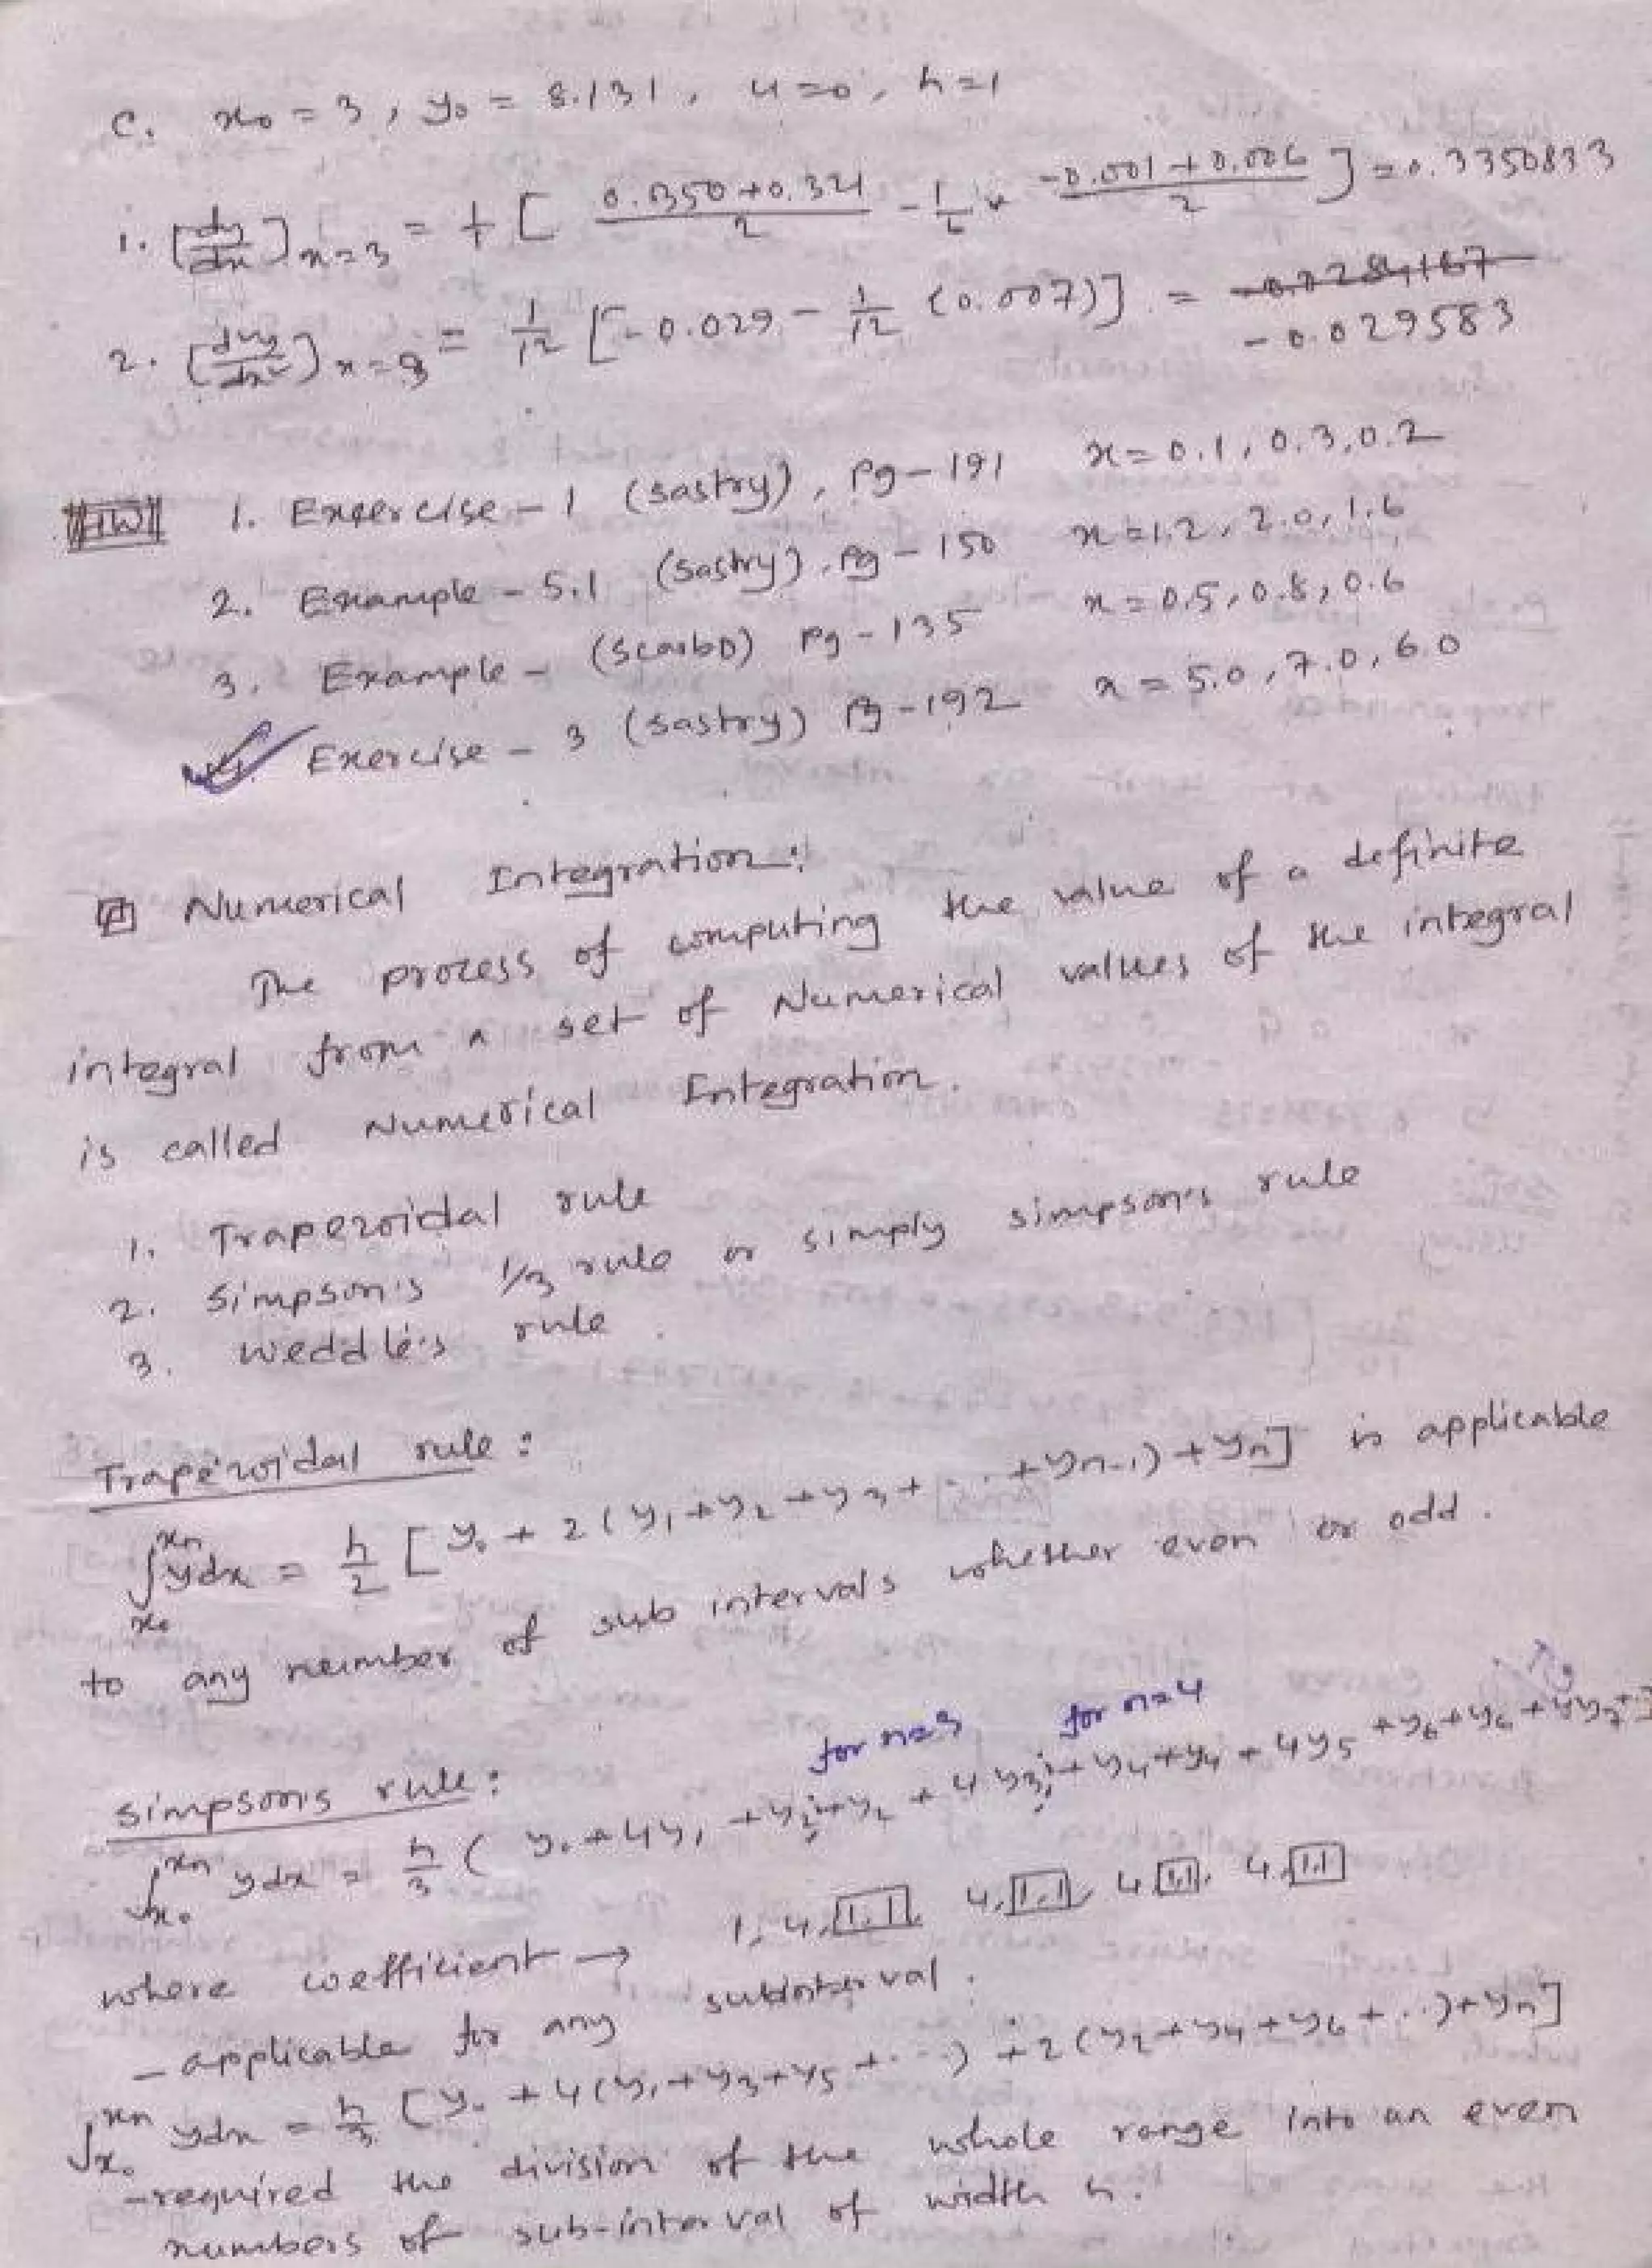 C. x₀ = 3, y₀ = 8.131, u=0, h=1
1. [dy/dx]x=3 = + [ (0.350+0.321)/2 - 1/6 × (-0.001+0.006)/2 ] = 0.3350833
2. [d²y/dx²]x=3 = 1/12 [-0.029 - 1/12 (0.007)] =
-0.029583
HW 1. Exercise - 1 (sastry), Pg - 191 x = 0.1, 0.3, 0.2
2. Example - 5.1 (sastry), Pg - 150 x = 1.2, 2.0, 1.6
3. Example - (scarbo) Pg - 135 x = 0.5, 0.8, 0.6
4. Exercise - 3 (sastry) Pg - 192 x = 5.0, 7.0, 6.0
Numerical Integration:
The process of computing the value of a definite
integral from a set of Numerical values of the integral
is called Numerical Integration.
1. Trapezoidal rule
2. Simpson's 1/3 rule or simply simpson's rule
3. Weddle's rule.
Trapezoidal rule:
∫x₀^xn ydx = h/2 [y₀ + 2(y₁+y₂+y₃+...+yn-1)+yn] is applicable
to any number of sub intervals whether even or odd.
for n=3 for n=4
Simpson's rule:
∫x₀^xn ydx = h/3 ( y₀+4y₁+y₂+y₂+4y₃+y₄+y₄+4y₅+y₆+y₆+4y₇+]
where coefficient → 1, 4, 1,1, 4, 1,1, 4 1,1, 4, 1,1
- applicable for any subinterval.
∫x₀^xn ydx = h/3 [y₀ + 4(y₁+y₃+y₅+...) + 2(y₂+y₄+y₆+...)+yn]
- required the division of the whole range into an even
numbers of sub-interval of width h.